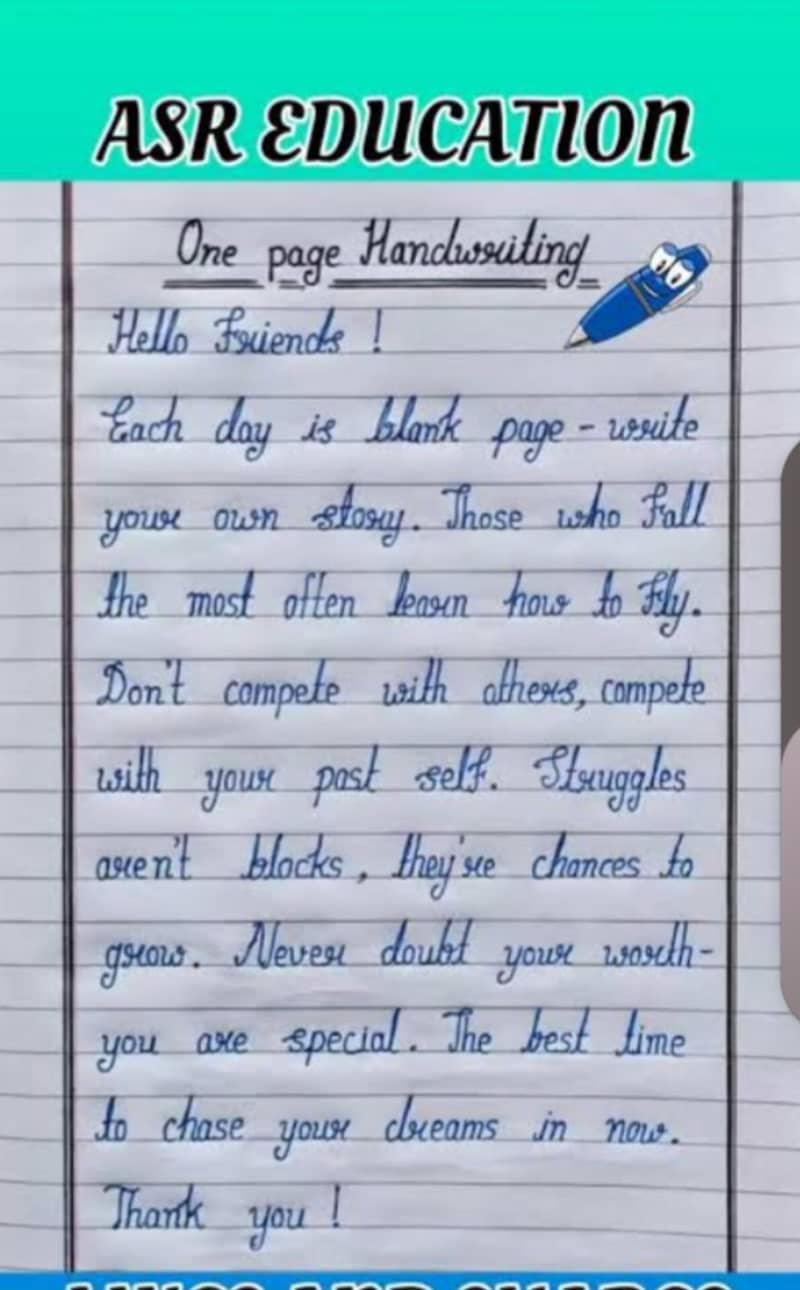 ASR EDUCATION
One page Handwriting
Hello Friends !
Each day is blank page - write
your own story. Those who fall
the most often learn how to Fly.
Don't compete with others, compete
with your past self. Struggles
aren't blocks, they're chances to
grow. Never doubt your worth-
you are special. The best time
to chase your dreams in now.
Thank you !